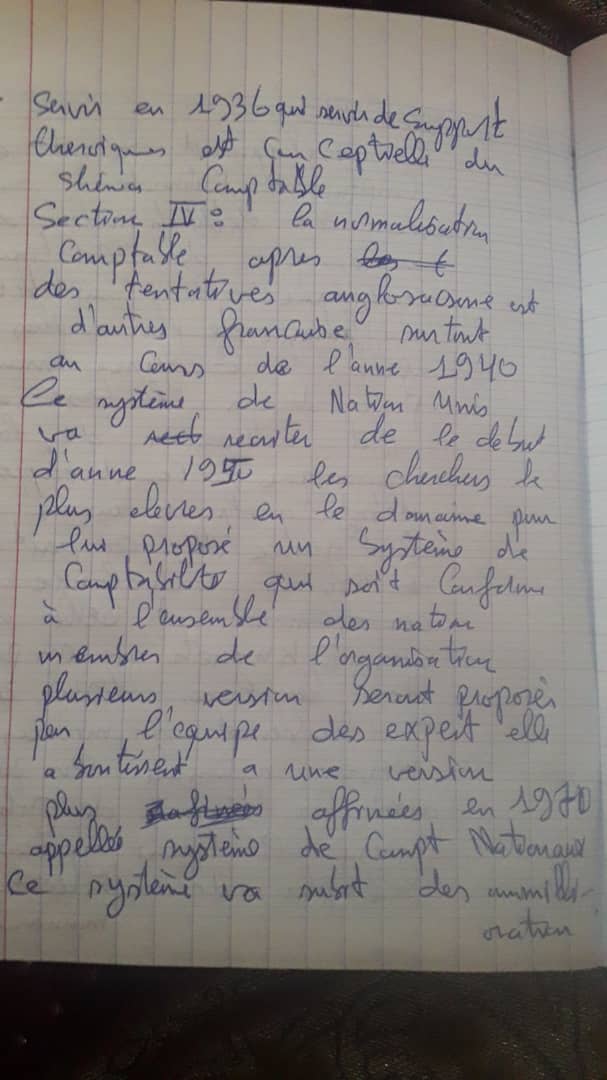 Servir en 1936 qui servir de Support
theroiques est Con Ceptuelle du
Shéma Comptable
Section IV : la normalisation
Comptable apres
des tentatives anglosacsone est
d'autres francaise, surtout
au Cours de l'anne 1940
Ce système de Nation Unis
va recruter de le debut
d'anne 1950 les cherchers le
plus eleves en le domaine pour
lui proposé un Système de
Comptabilité qui soit Conforme
à l'ensemble des nation
membres de l'organisation
plusieurs version seront proposés
par l'equipe des expert elle
a bontissent a une version
plus affinées en 1970
appellés système de Compt Nationaux
Ce système va subit des ammilli-
oration